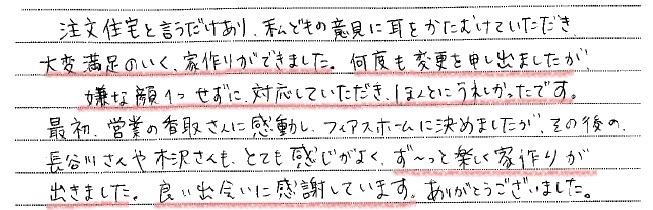 注文住宅と言うだけあり、私どもの意見に耳をかたむけていただき、
大変満足のいく、家作りができました。何度も変更を申し出ましたが、
嫌な顔1つせずに、対応していただき、ほんとにうれしかったです。
最初、営業の香取さんに感動し、フィアスホームに決めましたが、その後の、
長谷川さんや木沢さんも、とても感じがよく、ず〜っと楽しく家作りが
出きました。良い出会いに感謝しています。ありがとうございました。